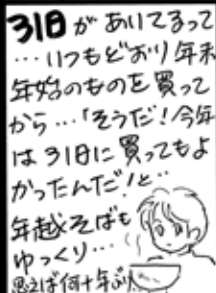 31日があいてるって
…いつもどおり年末
年始のものを買って
から…「そうだ!今年
は31日に買ってもよ
かったんだ!と…
年越そばも
ゆっくり…
思えば何十年ぶり